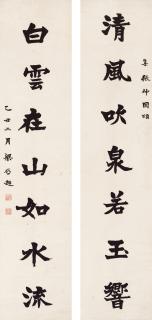 清風吹泉若玉響
白雲在山如水流
乙丑二月 梁啟超